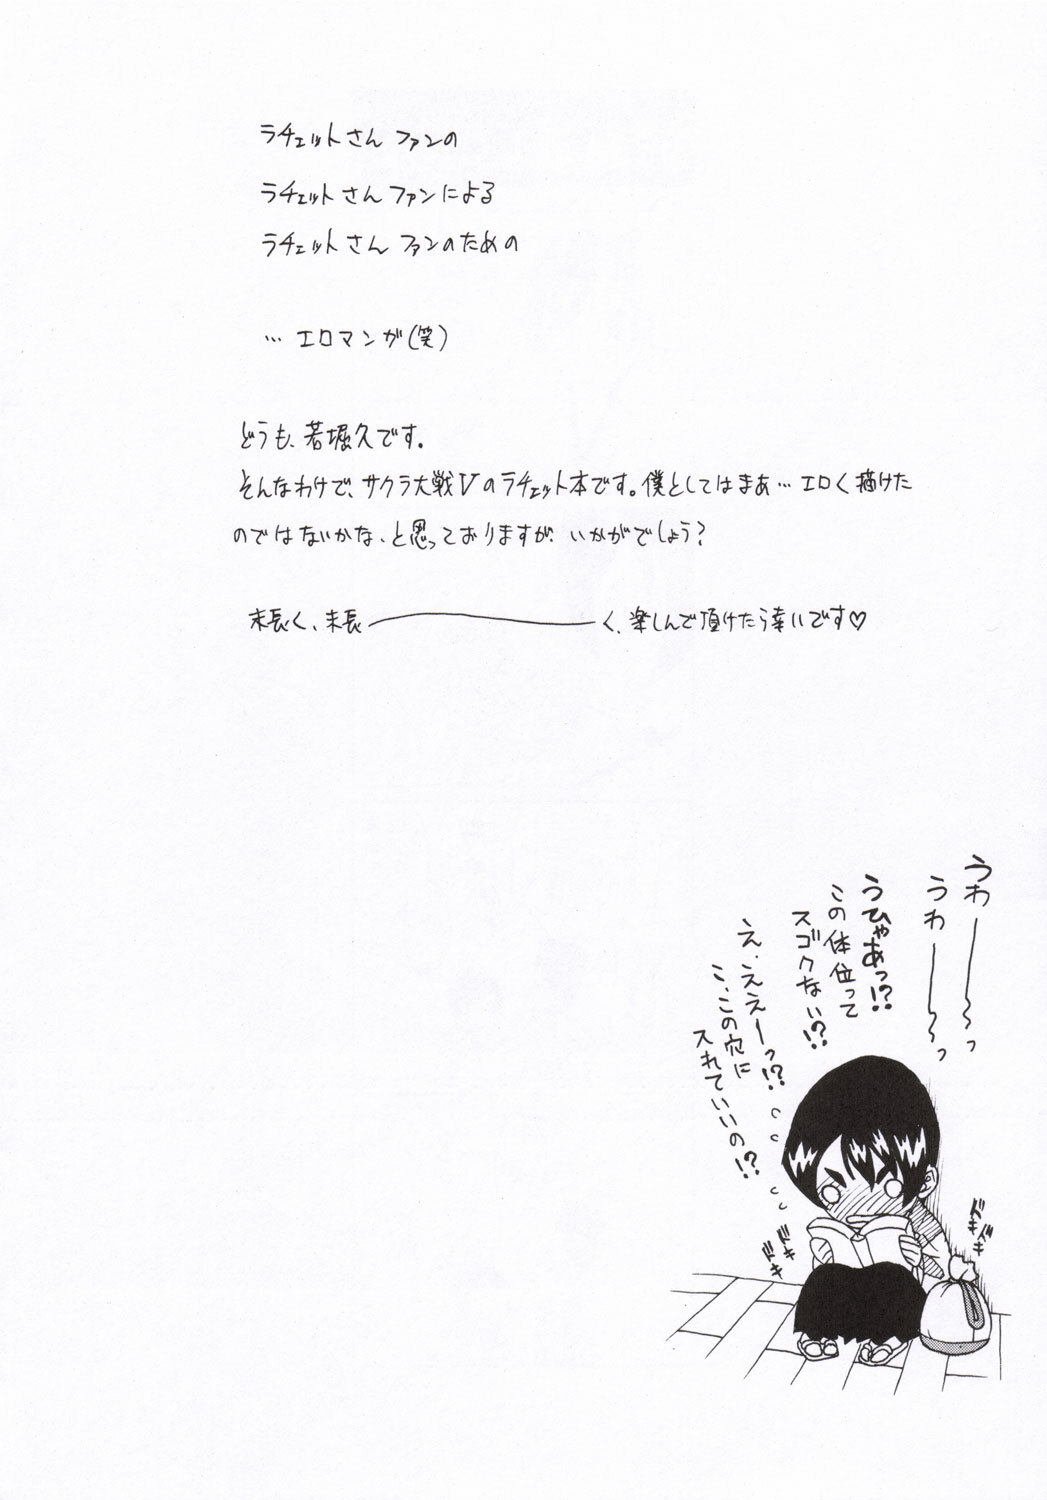 ラチェットさんファンの
ラチェットさんファンによる
ラチェットさんファンのための
…エロマンガ(笑)
どうも、若堀久です。
そんなわけで、サクラ大戦Vのラチェット本です。僕としてはまあ…エロく描けた
のではないかな、と思っておりますが、いかがでしょう?
末長く、末長――――く、楽しんで頂けたら幸いです♡
うわ――〜っ
うわ――〜っ
うひゃあっ!?
この体位って
スゴクない!?
え、ええーっ!?
こ、この穴に
入れていいの!?
ドキ
ドキ
ドキ
ドキ